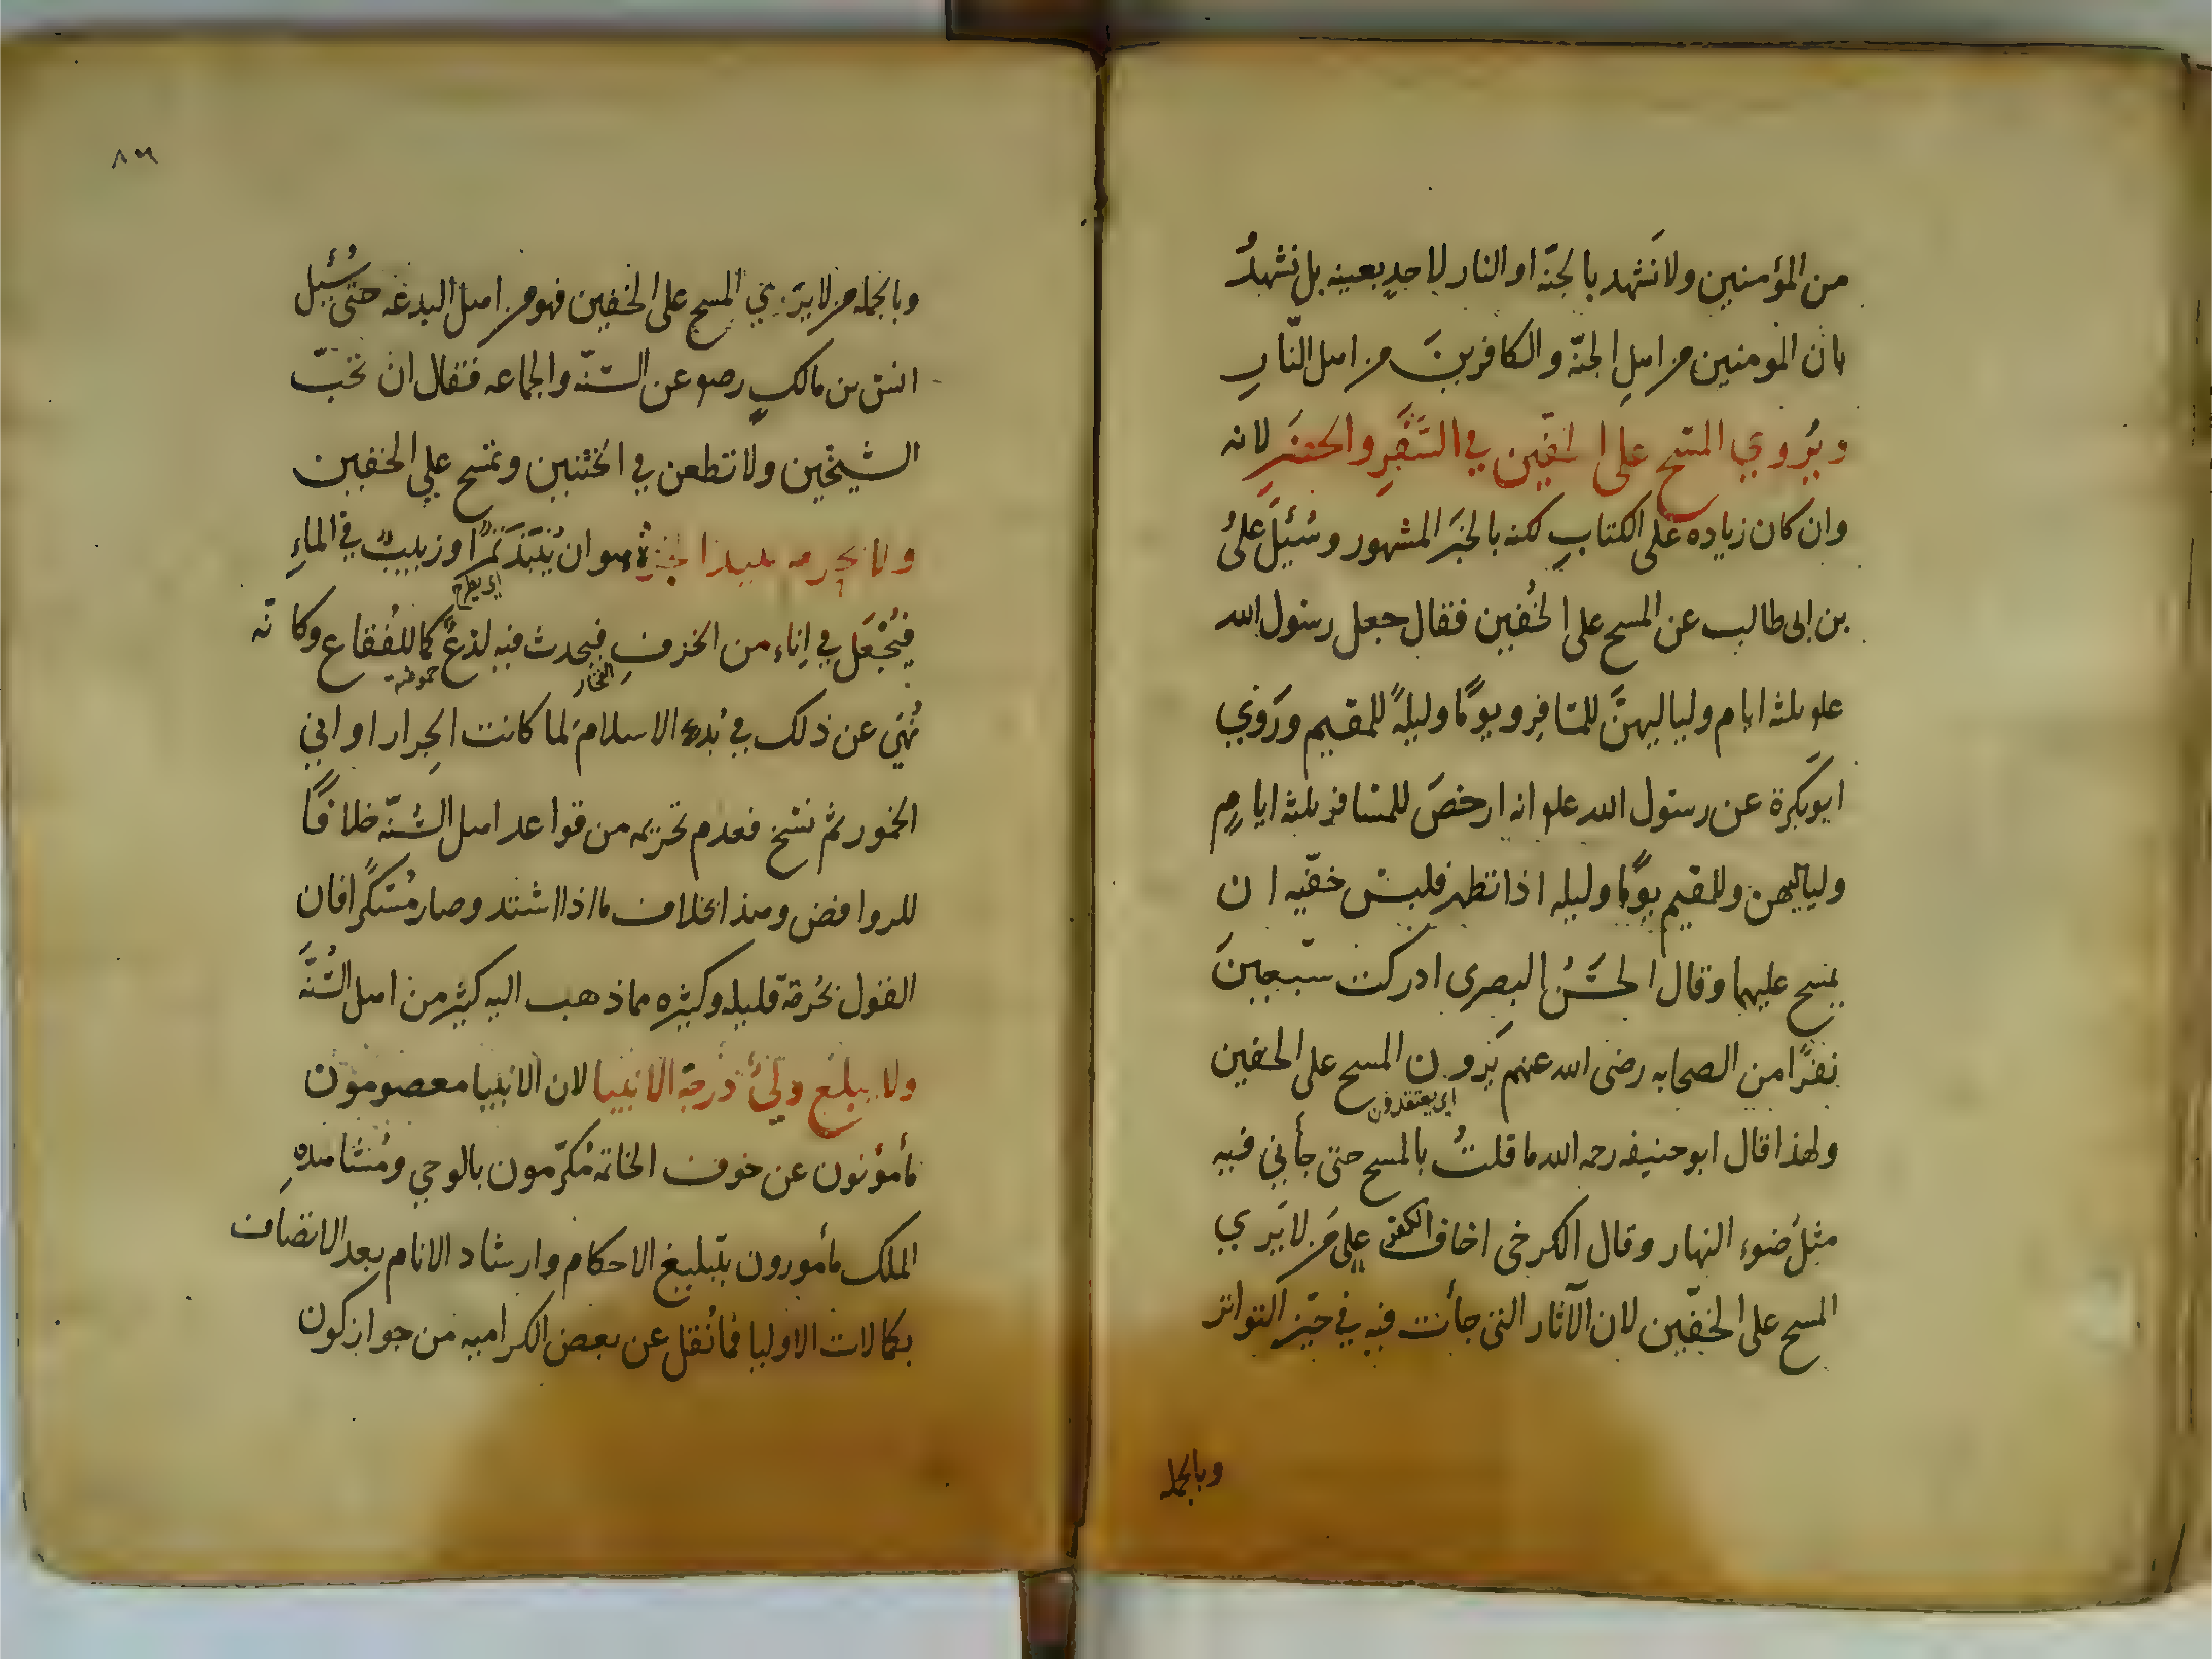 من المؤمنين ولا نشهد بالجنّة او النار لاحدٍ بعينه بل نشهدُ
بان المومنين من اهلِ الجنّة والكافرينَ من اهل النّارِ
ويُروي المسح على الخفّين في السَّفَرِ والحضَرِ لانه
وان كان زياده على الكتابِ لكنه بالخبَر المشهور وسُئِلَ علىُ
بن ابى طالب عن المسح على الخُفين فقال جعل رسول الله
علو ثلثه ايام ولياليهنَّ للمسافِر ويومًا وليلةً للمقيم ورَوَي
ابو بَكرة عن رسول الله علو انه ارخصَ للمسافر ثلثه ايامٍ
ولياليهن وللمقيم يومًا وليله اذا تطهر فلبس خفّيه ان
يمسح عليهما وقال الحسَنُ البصرى ادركت سبعينَ
نفرًا من الصحابه رضى الله عنهم يَرَون المسح على الخفين
اى يعتقدون
ولهذا قال ابو حنيفه رحمه الله ما قلتُ بالمسح حتى جأني فيه
مثلُ ضوء النهار وقال الكرخى اخاف الكفر على من لا يَري
المسح على الخفّين لان الآثار التى جأت فيه في حيّز التواتر
وبالجمله
٨٦
وبالجمله من لا يَرَي المسح على الخفين فهو من اهل البدعه حتى سُئِل
انس بن مالكٍ رضو عن السنّه والجماعه فقال ان تحبّ
الشيخين ولا تطعن في الختنين وتمسح علي الخفين
ولا نحرم نبيذ الجرّة هو ان يُنبَذ تَمرٌ او زبيبٌ في الماءِ
اى يطرح
فيُجْعَل في اِناء من الخزفِ فيحدث فيه لذعٌ كما للفُقاع وكانّه
الفخار
حموضه
نُهِيَ عن ذلك في بُدء الاسلام لما كانت الجِرار اواني
الخمور ثم نسخ فعدم تحريمه من قواعد اهل السُنّه خلافًا
للروافض وهذا بخلاف ما اذا اشتد وصار مُسكرًا فان
القول بحُرمة قليله وكثيره مما ذهب اليه كثير من اهل السُّنَّه
ولا يبلغ وليٌ درجة الانبيا لان الانبيا معصومون
مأمؤنون عن خوف الخاتمه مُكرّمون بالوحي ومُشاهدهِ
الملك مأمورون بتبليغ الاحكام وارشاد الانام بعد الاتصاف
بكمالات الاوليا فما نُقل عن بعض الكراميه من جواز كون